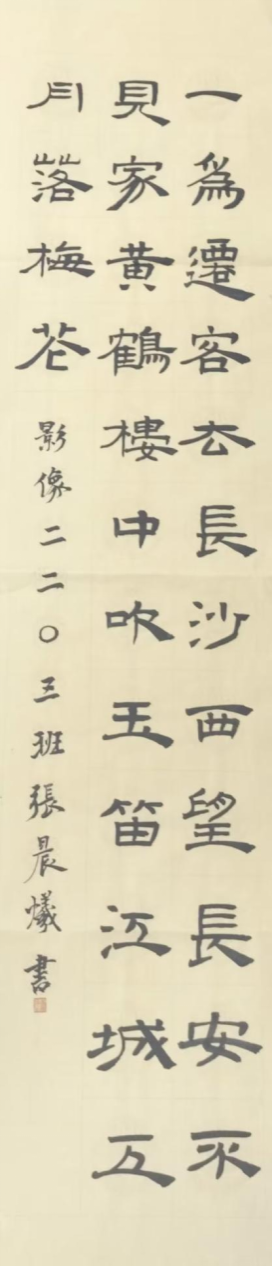 一為遷客去長沙西望長安不
見家黃鶴樓中吹玉笛江城五
月落梅花
影像二二〇三班張晨爔書